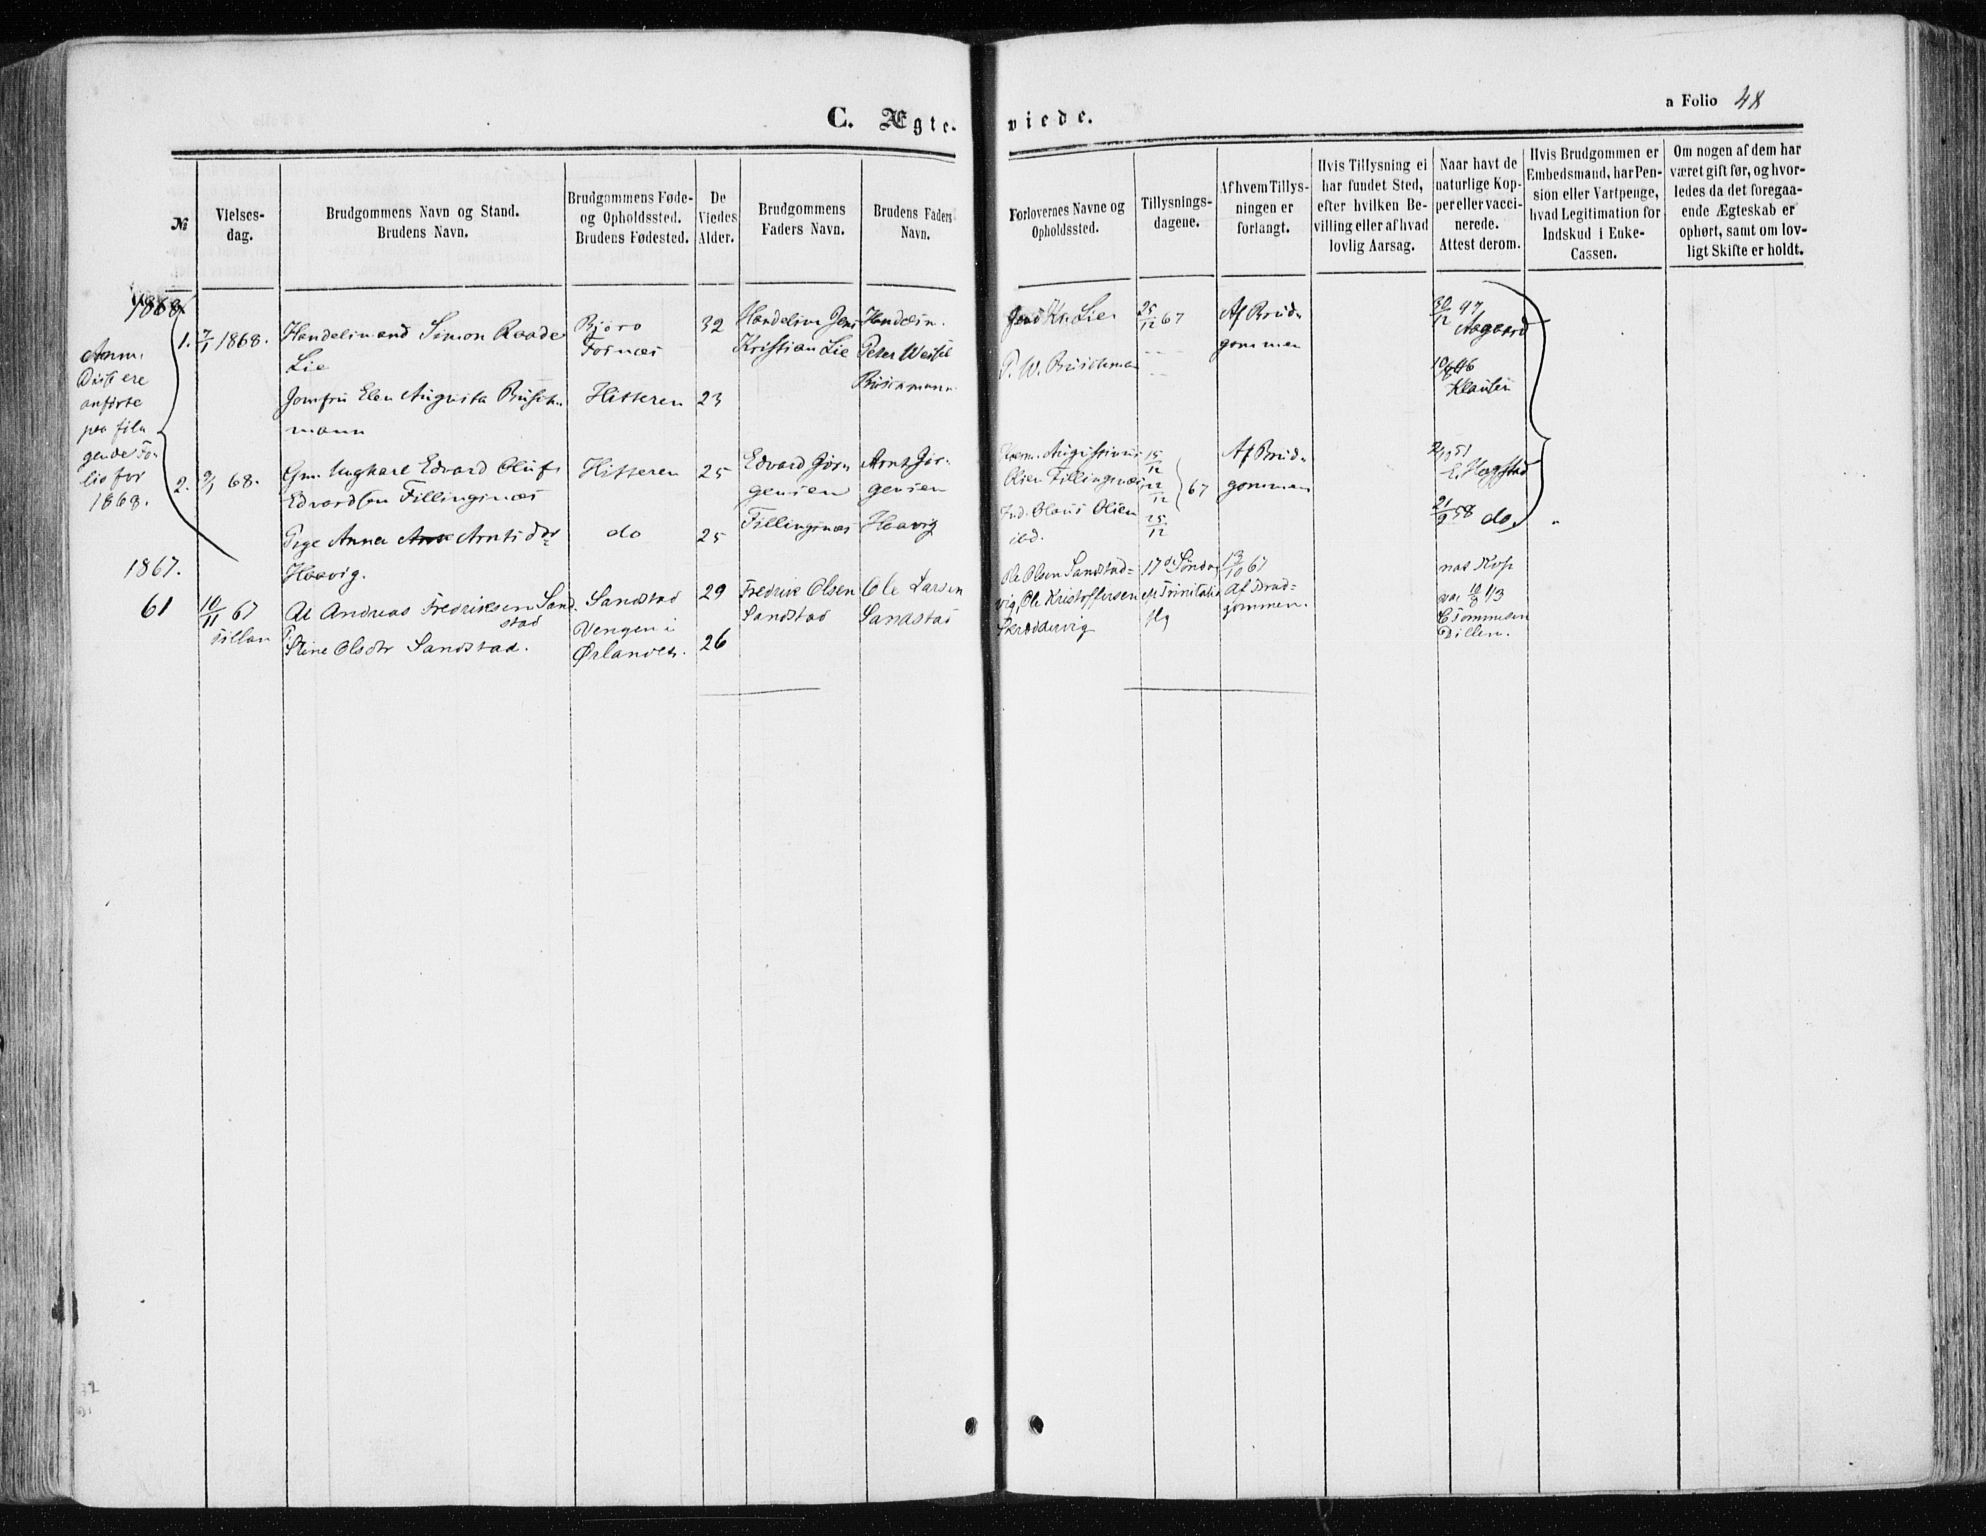 C. Ægte-
viede.
a Folio 48
№
Vielses-
dag.
Brudgommens Navn og Stand.
Brudens Navn.
Brudgommens Føde-
og Opholdssted.
Brudens Fødested.
De
Viedes
Alder.
Brudgommens
Faders Navn.
Brudens Faders
Navn.
Forlovernes Navne og
Opholdssted.
Tillysnings-
dagene.
Af hvem Tillys-
ningen er
forlangt.
Hvis Tillysning ei
har fundet Sted,
efter hvilken Be-
villing eller af hvad
lovlig Aarsag.
Naar havt de
naturlige Kop-
per eller vacci-
nerede.
Attest derom.
Hvis Brudgommen er
Embedsmand, har Pen-
sion eller Vartpenge,
hvad Legitimation for
Indskud i Enke-
Cassen.
Om nogen af dem har
været gift før, og hvor-
ledes da det foregaa-
ende Ægteskab er
ophørt, samt om lov-
ligt Skifte er holdt.
1868.
Anm.
Disse ere
anførte
paa føl-
gende Fo-
lio for
1868.
1.
7/1 1868.
Handelsmand Simon Raade
Lie
Jomfru Elen Augusta Busch-
mann
Bjørø
Fosnæs
Hitteren
32
23
Handelsm Jens
Kristian Lie
Handelsm.
Peter Wessel
Buschmann
Jens Kr. Lie
P. W. Buschman
25/12 67
Af Brud-
gommen
30/12 47
Aagaard
46
Klausen
2.
68.
Gm. Ungkarl Edvard Oluf
Edvardsen Fillingsnæs
Pige Anna Arntsdtr
Haavig.
Hitteren
do
25
25
Edvard Jørn-
gensen
Fillingsnæs
Arnt Jør-
gensen
Haavig
Olsen Fillingsnæs
Olaus Olsen
ibd.
15/12
22/12
25/12
67
Af Brud-
gommen
51
E. Hagstad
21/9 58 do.
1867.
61
10/11 67
Fillan
Andreas Fredriksen Sand-
stad
P. Stine Olsdtr Sandstad.
Sandstad
Vengen i
Ørlandet.
29
26
Fredrik Olsen
Sandstad
Ole Larsen
Sandstad
Ole Olsen Sandstad-
vig, Ole Kristoffersen
Skreddervig
17de Søndag
ef Trinitatis
flg
13/10 67
Af Brud-
gommen.
nat Kop
vac 10/8 43
C Tommesen
Dillen.